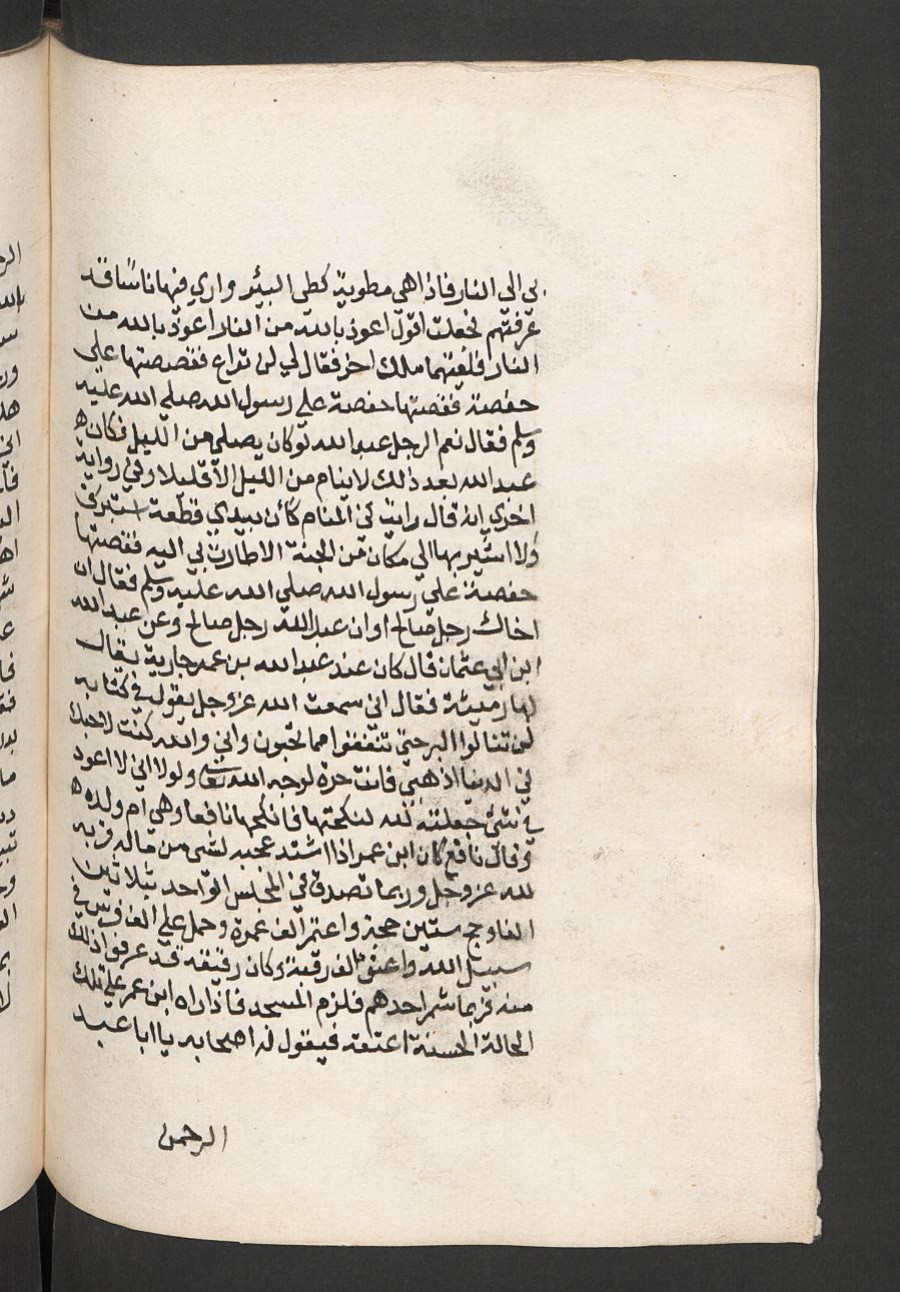 بي الى النار فاذا هي مطوية كطى البئر واري فيها ناسا قد
عرفتهم فجعلت اقول اعوذ بالله من النار اعوذ بالله من
النار فلقيهما ملك اخر فقال لي لن تراع فقصصتها على
حفصة فقصتها حفصة على رسول الله صلى الله عليه
وسلم فقال نعم الرجل عبد الله لو كان يصلي من الليل فكان
عبد الله بعد ذلك لا ينام من الليل الا قليلا وفي رواية
اخري انه قال رايت في المنام كأن بيدي قطعة استبرق
ولا اشير بها الي مكان من الجنة الا طارت بي اليه فقصتها
حفصة علي رسول الله صلي الله عليه وسلم فقال ان
اخاك رجل صالح او ان عبد الله رجل صالح وعن عبد الله
ابن ابي عثمان قال كان عند عبد الله بن عمر جارية يقال
لها رميثة فقال اني سمعت الله عز وجل يقول في كتابه
لن تنالوا البر حتى تنفقوا مما تحبون واني والله كنت لاحبك
في الدنيا اذهبي فانت حرة لوجه الله تعالى ولولا اني لا اعود
في شئ جعلته لله لنكحتها فانكحها نافعا وهي ام ولده
وقال نافع كان ابن عمر اذا اشتد عجبه لشى من ماله قربه
لله عز وجل وربما تصدق في المجلس الواحد بثلاثين
الفا وحج ستين حجة واعتمر الف عمرة وحمل على الف فرس في
سبيل الله واعتق الف رقبة وكان رقيقه قد عرفوا ذلك
منه فربما شمر احدهم فلزم المسجد فاذا راه ابن عمر على تلك
الحالة الحسنة اعتقه فيقول له اصحابه يا ابا عبد
الرحمن